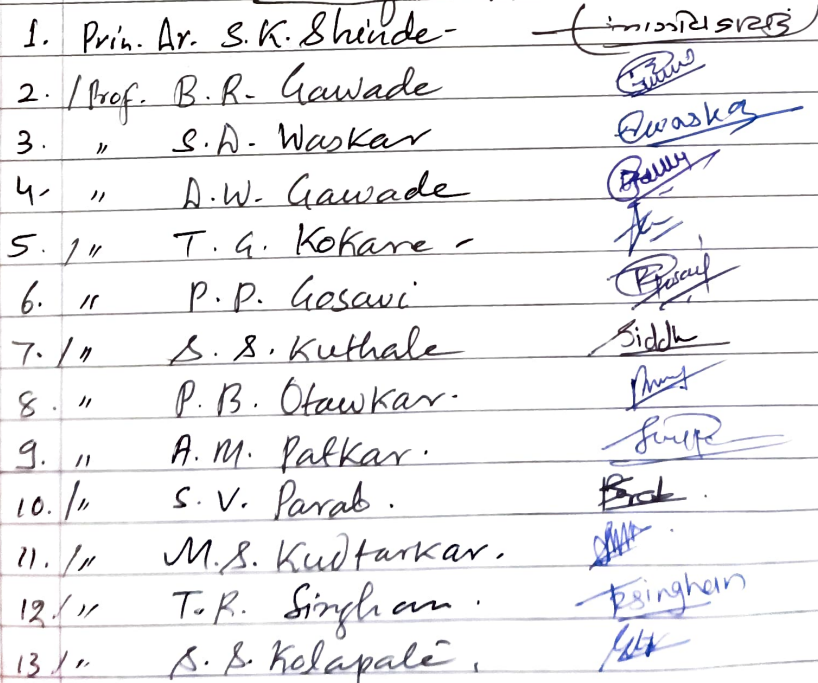 1. Prin. Ar. S.K. Shinde -
2. / Prof. B.R. Gawade
3. " S.D. Waskar Swaskar
4- " D.W. Gawade
5. / " T. G. Kokare -
6. " P.P. Gosavi
7. / " S.S. Kuthale Siddh
8. " P.B. Otawkar.
9. " A.M. Patkar.
10. / " S.V. Parab.
11. / " M.S. Kudtarkar.
12 / " T.R. Singhan. TRsinghan
13 / " S.S. Kolapate.